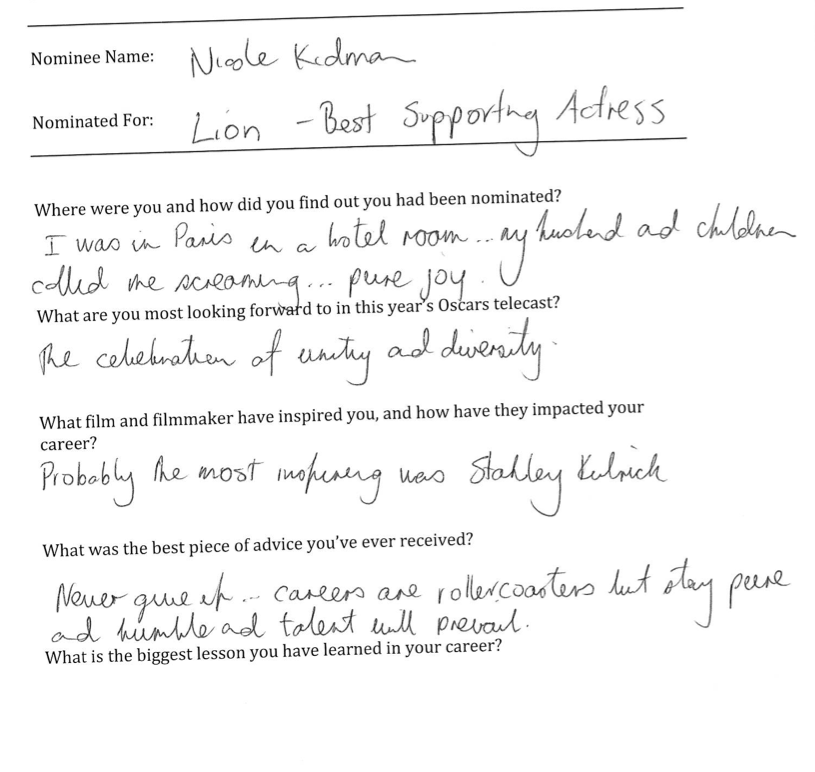 Nominee Name: Nicole Kidman
Nominated For: Lion - Best Supporting Actress
Where were you and how did you find out you had been nominated?
I was in Paris in a hotel room... my husband and children
called me screaming... pure joy.
What are you most looking forward to in this year's Oscars telecast?
The celebration of unity and diversity.
What film and filmmaker have inspired you, and how have they impacted your
career?
Probably the most inspiring was Stanley Kubrick
What was the best piece of advice you've ever received?
Never give up... careers are rollercoasters but stay pure
and humble and talent will prevail.
What is the biggest lesson you have learned in your career?